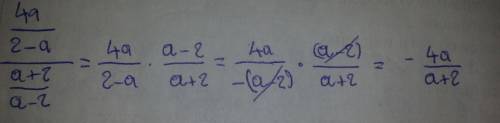 \frac{\frac{4a}{2-a}}{\frac{a+2}{a-2}} = \frac{4a}{2-a} \cdot \frac{a-2}{a+2} = \frac{4a}{-(a-2)} \cdot \frac{(a-2)}{a+2} = -\frac{4a}{a+2}